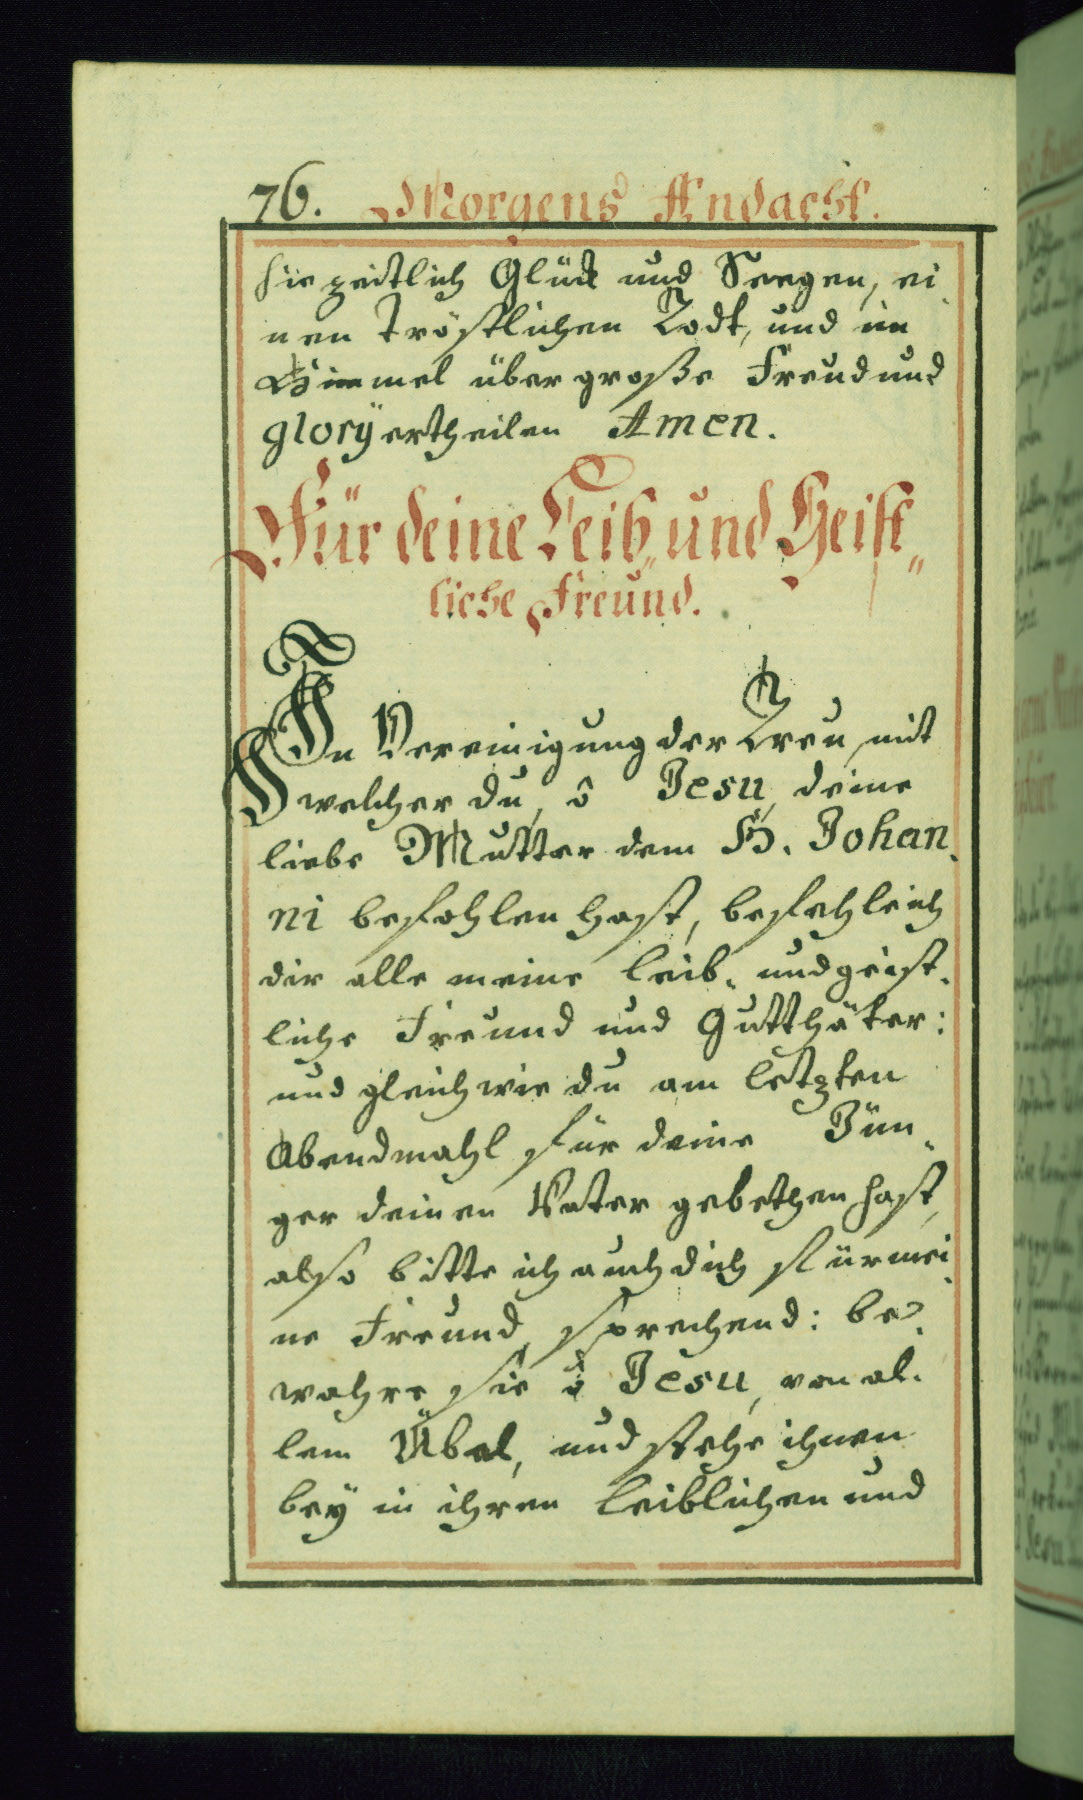 76. Morgens Andacht.
hie zeitlich Glück und Seegen, ei-
nen tröstlichen Todt, und im
Himmel über große Freud und
glory ertheilen Amen.
Für deine Leib- und Geist-
liche Freund.
In Vereinigung der Treu, mit
welcher du, ô Jesu, deine
liebe Mutter dem H. Johan-
ni befohlen hast, befehle ich
dir alle meine leib- und geist-
liche Freund und Gutthäter:
und gleich wie du am letzten
Abendmahl für deine Jün-
ger deinen Vater gebethen hast,
also bitte ich auch dich für mei-
ne Freund, sprechend: be-
wahre sie ô Jesu, von al-
lem Übel, und stehe ihnen
bey in ihren leiblichen und